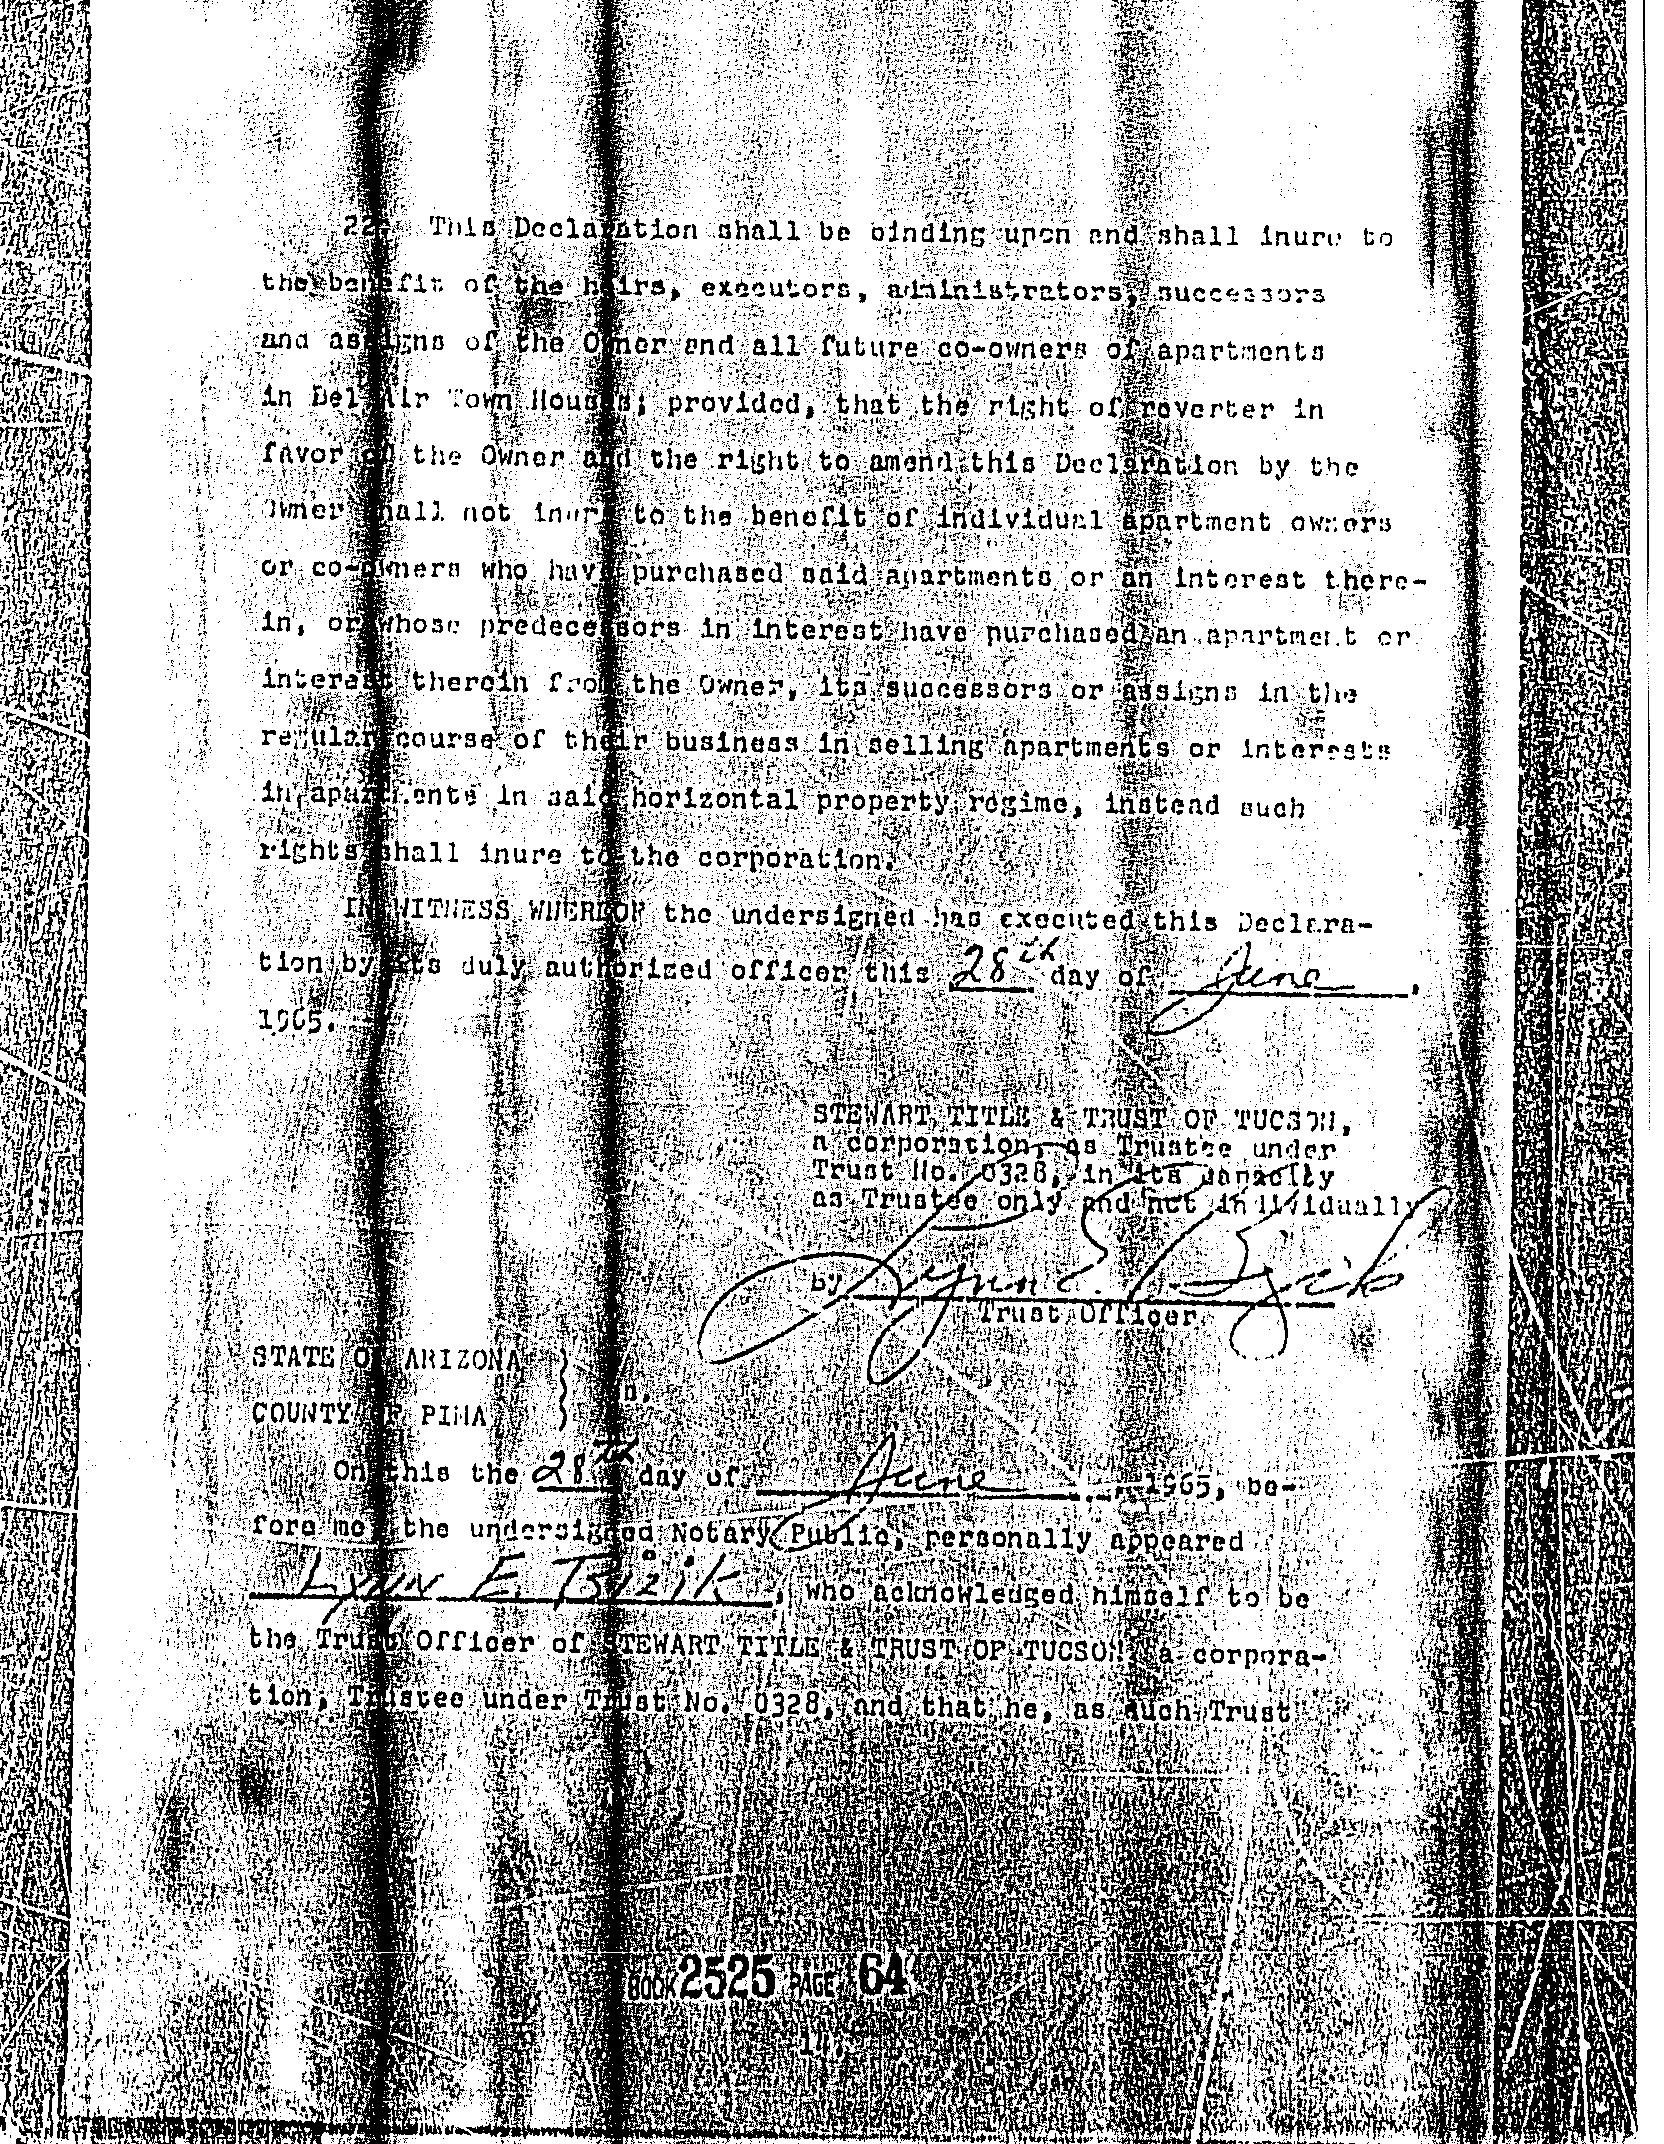 22. This Declaration shall be binding upon and shall inure to
the benefit of the heirs, executors, administrators, successors
and assigns of the Owner and all future co-owners of apartments
in Bel Air Town Houses; provided, that the right of reverter in
favor of the Owner and the right to amend this Declaration by the
Owner shall not inure to the benefit of individual apartment owners
or co-owners who have purchased said apartments or an interest there-
in, or whose predecessors in interest have purchased an apartment or
interest therein from the Owner, its successors or assigns in the
regular course of their business in selling apartments or interests
in apartments in said horizontal property regime, instead such
rights shall inure to the corporation.
IN WITNESS WHEREOF the undersigned has executed this Declara-
tion by its duly authorized officer this 28th day of June,
1965.
STEWART TITLE & TRUST OF TUCSON,
a corporation, as Trustee under
Trust No. 0328, in its capacity
as Trustee only and not individually
By Lynn E.
Trust Officer
STATE OF ARIZONA )
COUNTY OF PIMA )
On this the 28th day of June, 1965, be-
fore me, the undersigned Notary Public, personally appeared
Lynn E., who acknowledged himself to be
the Trust Officer of STEWART TITLE & TRUST OF TUCSON, a corpora-
tion, Trustee under Trust No. 0328, and that he, as such Trust
BOOK 2525 PAGE 64